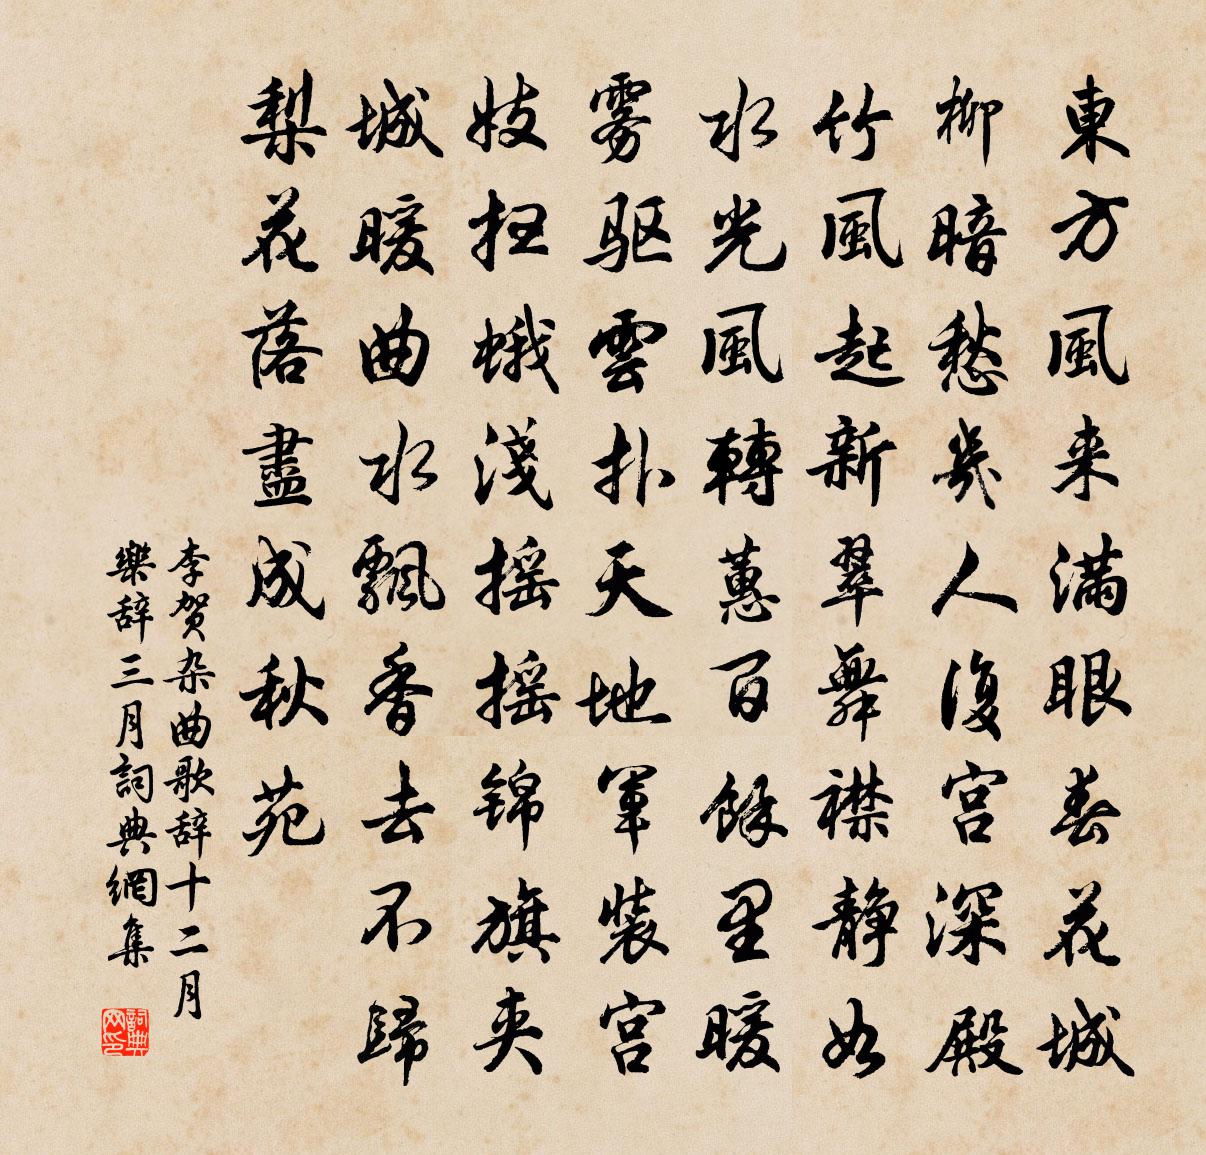 東方風来满眼春花城
柳暗愁幾人復宫深殿
竹風起新翠舞襟静如
水光風轉蕙百餘里暖
雾驱雲扑天地軍裝宫
妓扫蛾淺摇摇锦旗夹
城暖曲水飄香去不歸
梨花落盡成秋苑
李贺杂曲歌辞十二月
樂辞三月詞典網集
詞典网印